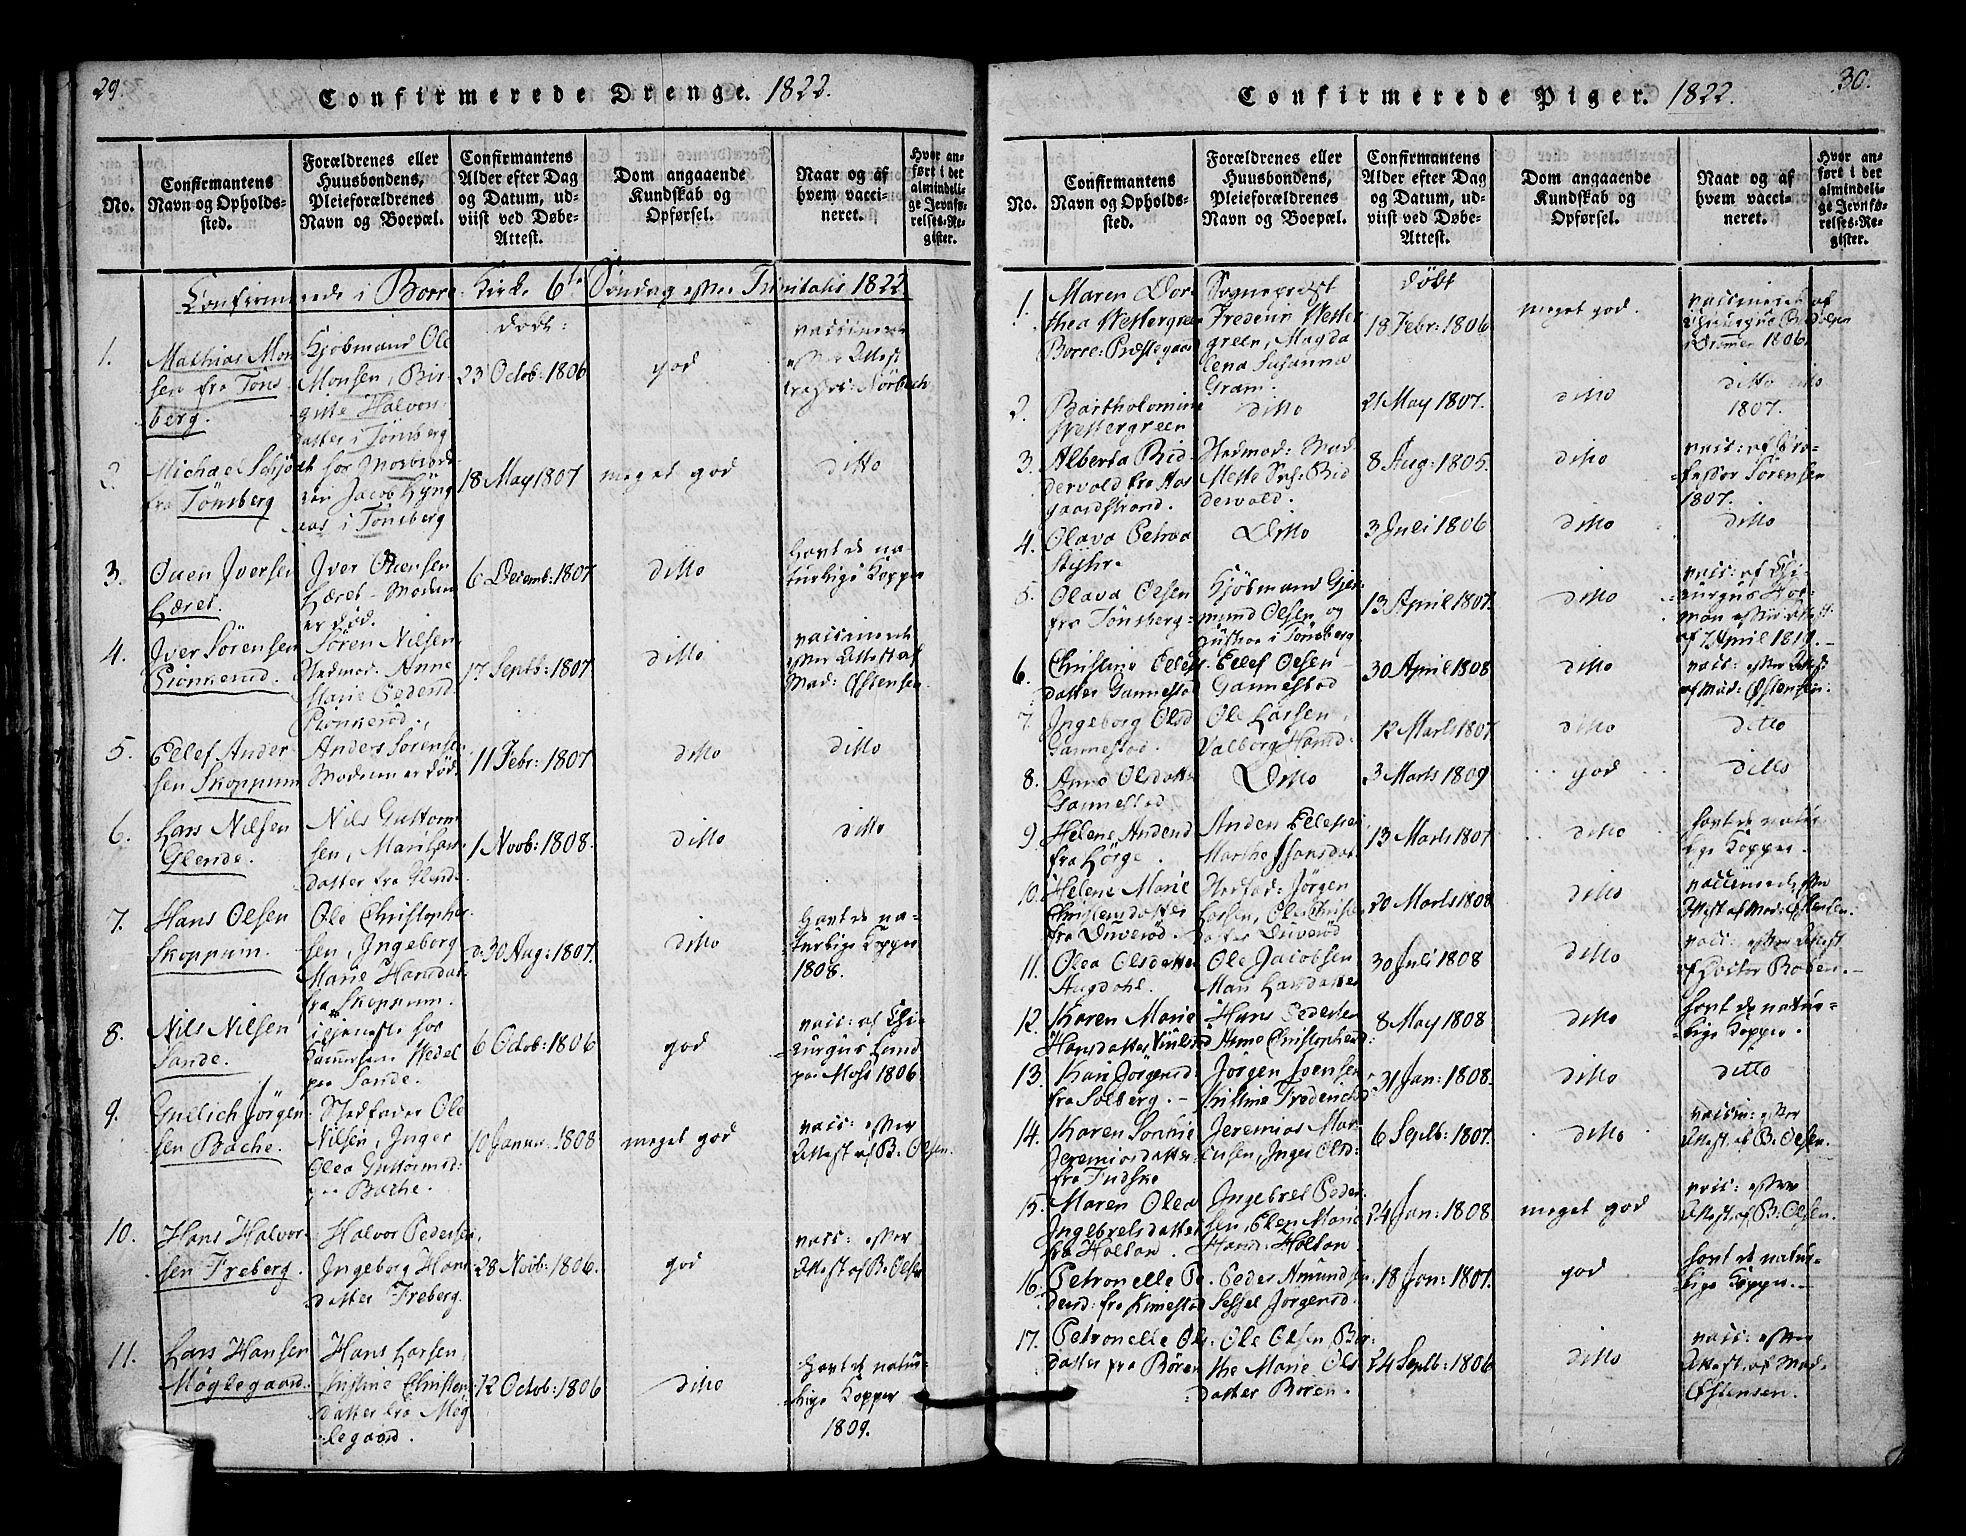 29.
Confirmerede Drenge. 1822.
No.
Confirmantens
Navn og Opholds-
sted.
Forældrenes eller
Huusbondens,
Pleieforældrenes
Navn og Boepæl.
Confirmantens
Alder efter Dag
og Datum, ud-
viist ved Døbe-
Attest.
Dom angaaende
Kundskab og
Opførsel.
Naar og af
hvem vacci-
neret.
Hvor an-
ført i det
almindeli-
ge Jevnfø-
relses-Re-
gister.
Confirmerede i Borre Kirke 6te Søndag efter Trinitatis 1822
1.
Mathias Mon
sen fra Tøns
berg.
Kjøbmand Ole
Monsen, Bir
gitte Halvor
datter i Tønsberg
døbt:
23 Octob: 1806
god
vaccineret
efter Attest
2.
Michael
fra Tønsberg
hos Morbrode
ren Jacob Lyng
aas i Tønsberg
18 May 1807
meget god
ditto
3.
Ouen Iversen
Læret.
Iver Ouensen
Læret - Moderen
er død.
6 Decemb: 1807
ditto
havt de na-
turlige Kopper
4.
Iver Sørensen
Søren Nilsen
Anne
Marie Pedersd
17 Septb: 1807
ditto
vaccineret
efter Attest af
Mad: Østensen.
5.
Ellef Ander
sen Skoppum
Anders Sørensen
Moderen er død.
11 Febr: 1807
ditto
ditto
6.
Lars Nilsen
Glende.
Nils Guttorm
sen, Mari Lars
datter fra Glende
1 Novb: 1808.
ditto
ditto
7.
Hans Olsen
Skoppum.
Ole Christopher
sen, Ingeborg
Marie Hansdat.
fra Skoppum.
30 Aug: 1807.
ditto
havt de na-
turlige Kopper
1808.
8.
Nils Nilsen
Sande.
i tjeneste hos
Wedel
paa Sande.
6 Octob: 1806
god
vacc: af Chi-
rurgus Lund
paa Moss 1806.
9.
Gullich Jørgen
sen Bache.
Stedfader Ole
Nilsen, Inger
Olea Guttormsd:
paa Bache.
10 Januar 1808
meget god
vacc: efter
Attest af B. Olsen.
10.
Hans Halvor-
sen Freberg.
Halvor Pedersen,
Ingeborg Hans
datter Freberg.
28 Novb: 1806.
god
vacc: efter
Attest af B. Olsen
11.
Lars Hansen
Møglegaard.
Hans Larsen,
Kirstine Christens
datter fra Møg
legaard.
12 Octob: 1806
ditto
havt de natur-
lige Kopper
1809.
30.
Confirmerede Piger. 1822.
No.
Confirmantens
Navn og Opholds-
sted.
Forældrenes eller
Huusbondens,
Pleieforældrenes
Navn og Boepæl.
Confirmantens
Alder efter Dag
og Datum, ud-
viist ved Døbe-
Attest.
Dom angaaende
Kundskab og
Opførsel.
Naar og af
hvem vacci-
neret.
Hvor an-
ført i det
almindeli-
ge Jevnfø-
relses-Re-
gister.
1.
Maren Doro
thea Westergreen
Borre Præstegaard
Sognepræst
Frederik Wester
green, Magda
lena Susanna
Gram.
døbt
18 Febr: 1806
meget god.
vaccineret af
Chirurgus
1806.
2.
Bartholomine
Westergreen
ditto
21 May 1807.
ditto
ditto ditto
1807.
3.
Alberta Bid
dervold fra Aas
gaardstrand.
Mette Bid
dervold.
8 Aug: 1805.
ditto
vacc: af Pro-
fessor Sørensen
1807.
4.
Olava Petrea
Ditto
3 Juli 1806
ditto
ditto
5.
Olava Olsen
fra Tønsberg
Kjøbmand Gjer
mund Olsen og
Hustrue i Tønsberg
13 April 1807.
ditto
vacc: af Chi-
rurgus
efter Attest
af 7 April 1811.
6.
Christine Ellefs
datter Gannestad
Ellef Olsen
Gannestad
30 April 1808
ditto
vacc: efter Attest
af Mad: Østensen.
7.
Ingeborg Olsd
Gannestad.
Ole Larsen,
Valborg Hansd.
12 Marts 1807
ditto
ditto
8.
Anne Olsdatter
Gannestad
Ditto
3 Marts 1809
god
ditto
9.
Helene Andersd
fra Lørge.
Anders Ellefsen
Marthe Hansdat.
13 Marts 1807
ditto
havt de natur-
lige Kopper.
10.
Helene Marie
Christensdatter
fra Duverød.
Stedfad: Jørgen
Larsen, Christs
datter Duverød
20 Marts 1808
ditto
vaccineret efter
Attest af Mad: Østensen.
11.
Olea Olsdatter
Augdahl.
Ole Jacobsen
Mari Larsdatter
30 Juli 1808
ditto
vacc: efter Attest
af Doctor Roben.
12.
Karen Marie
Hansdatter
Hans Pedersen
Anne Christophersd:
8 May 1808
ditto
havt de natur-
lige Kopper.
13.
Kari Jørgensd:
fra Solberg.
Jørgen Ivensen
Kirstine Fredericksd
31 Jan: 1808.
ditto
ditto
14.
Karen Sophie
Jeremiasdatter
fra Fudske
Jeremias Mar
cusen, Inger Olsd:
6 Septb: 1807.
ditto
vaccin: efter
Attest af B. Olsen.
15.
Maren Olea
Ingebretsdatter
fra Holtan.
Ingebret Peder
sen, Elen Marie
Hansd: Holtan.
24 Jan: 1808
meget god
vacc: efter
Attest af B. Olsen.
16.
Petronelle Pe
dersd: fra Kimestad
Peder Amundsen,
Sessel Jørgensd.
18 Jan: 1807.
god
havt de natur-
lige Kopper.
17.
Petronelle Ols:
datter fra Børen
Ole Olsen, Ber
the Marie Ols
datter Børen.
24 Septb: 1806
ditto
vacc: efter
Attest af Mad.
Østensen.